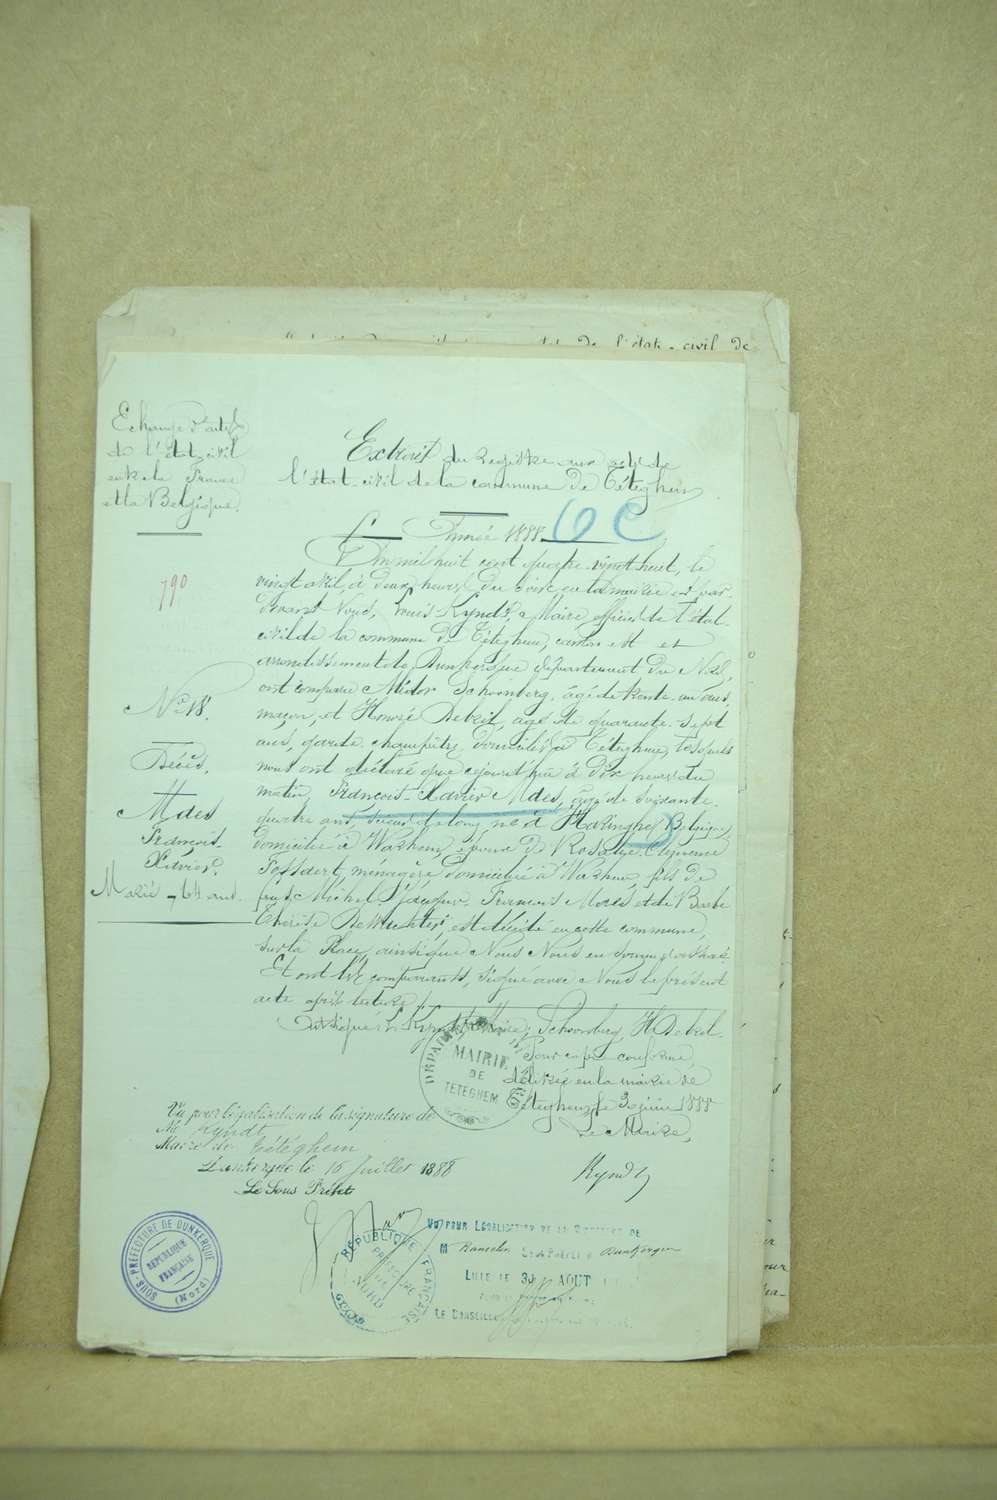 de l'état-civil de
Echange d'actes
de l'état civil
entre la France
et la Belgique.
790
No 18.
Décès,
Moles
François-
Xavier.
Marié, 64 ans.
Extrait du Registre aux actes de
l'état-civil de la commune de Téteghem
6 C
Année 1888
L'An mil huit cent quatre-vingt huit, le
vingt avril, à deux heures du soir, en la mairie et par-
devant Nous, Louis Kyndt, Maire officier de l'état-
civil de la commune de Téteghem, canton est et
arrondissement de Dunkerque département du Nord,
ont comparu Médor Schoonberg, âgé de trente-un ans,
maçon, et Honoré Debril, âgé de quarante-sept
ans, garde-champêtre, domiciliés à Téteghem, lesquels
nous ont déclaré que cejourd'hui à dix heures du
matin, François-Xavier Moles, âgé de soixante-
quatre ans, scieur de long, né à Haringhe (Belgique)
domicilié à Warhem, époux de Rosalie Clémence
ménagère domiciliée à Warhem, fils de
feus Michel Jacques François Moles et de Barbe
Thérèse Dewachter, est décédé en cette commune,
sur la Place, ainsi que Nous Nous en sommes assuré
Et ont les comparants, signé avec Nous le présent
acte après lecture /.
Ont signé: L. Kyndt, Maire; Schoonberg, H. Debril.
Pour copie conforme
délivrée en la mairie de
Téteghem, le 30 juin 1888
Le Maire,
Kyndt
MAIRIE
DE
TÉTEGHEM
Vu pour légalisation de la signature de
Mr Kyndt
Maire de Téteghem
Dunkerque le 16 Juillet 1888
Le Sous Préfet
SOUS-PRÉFECTURE DE DUNKERQUE
RÉPUBLIQUE
FRANÇAISE
(Nord)
RÉPUBLIQUE FRANÇAISE
PRÉFECTURE
DU
NORD
VU POUR LÉGALISATION DE LA SIGNATURE DE
M Dunkerque
LILLE LE 30 AOUT
LE CONSEILLER